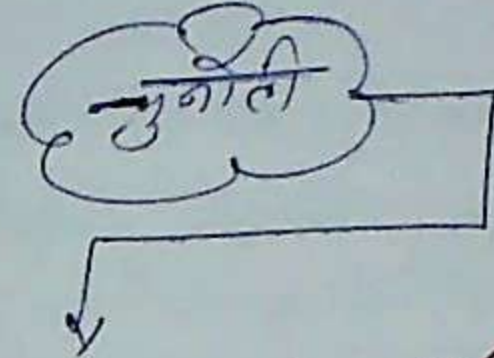 चुनौती